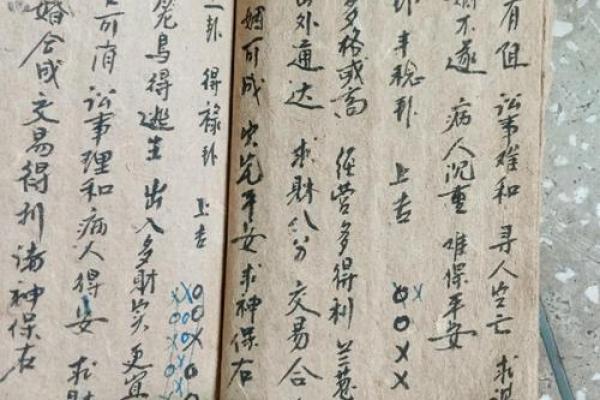 有阻 讼事难和 寻人空亡 求
不遂 病人沉重 难保平安
卦 丰稔卦 上吉 〇〇××
多格或高 经营多得利 兰
外通达 求财八分 交易合
姻可成 平安 求神保右
卦 得禄卦 上吉
鸟得逃生 出入多财 更宜
可消 讼事理和 病人得安 求财
婚合成 交易得利 诸神保右